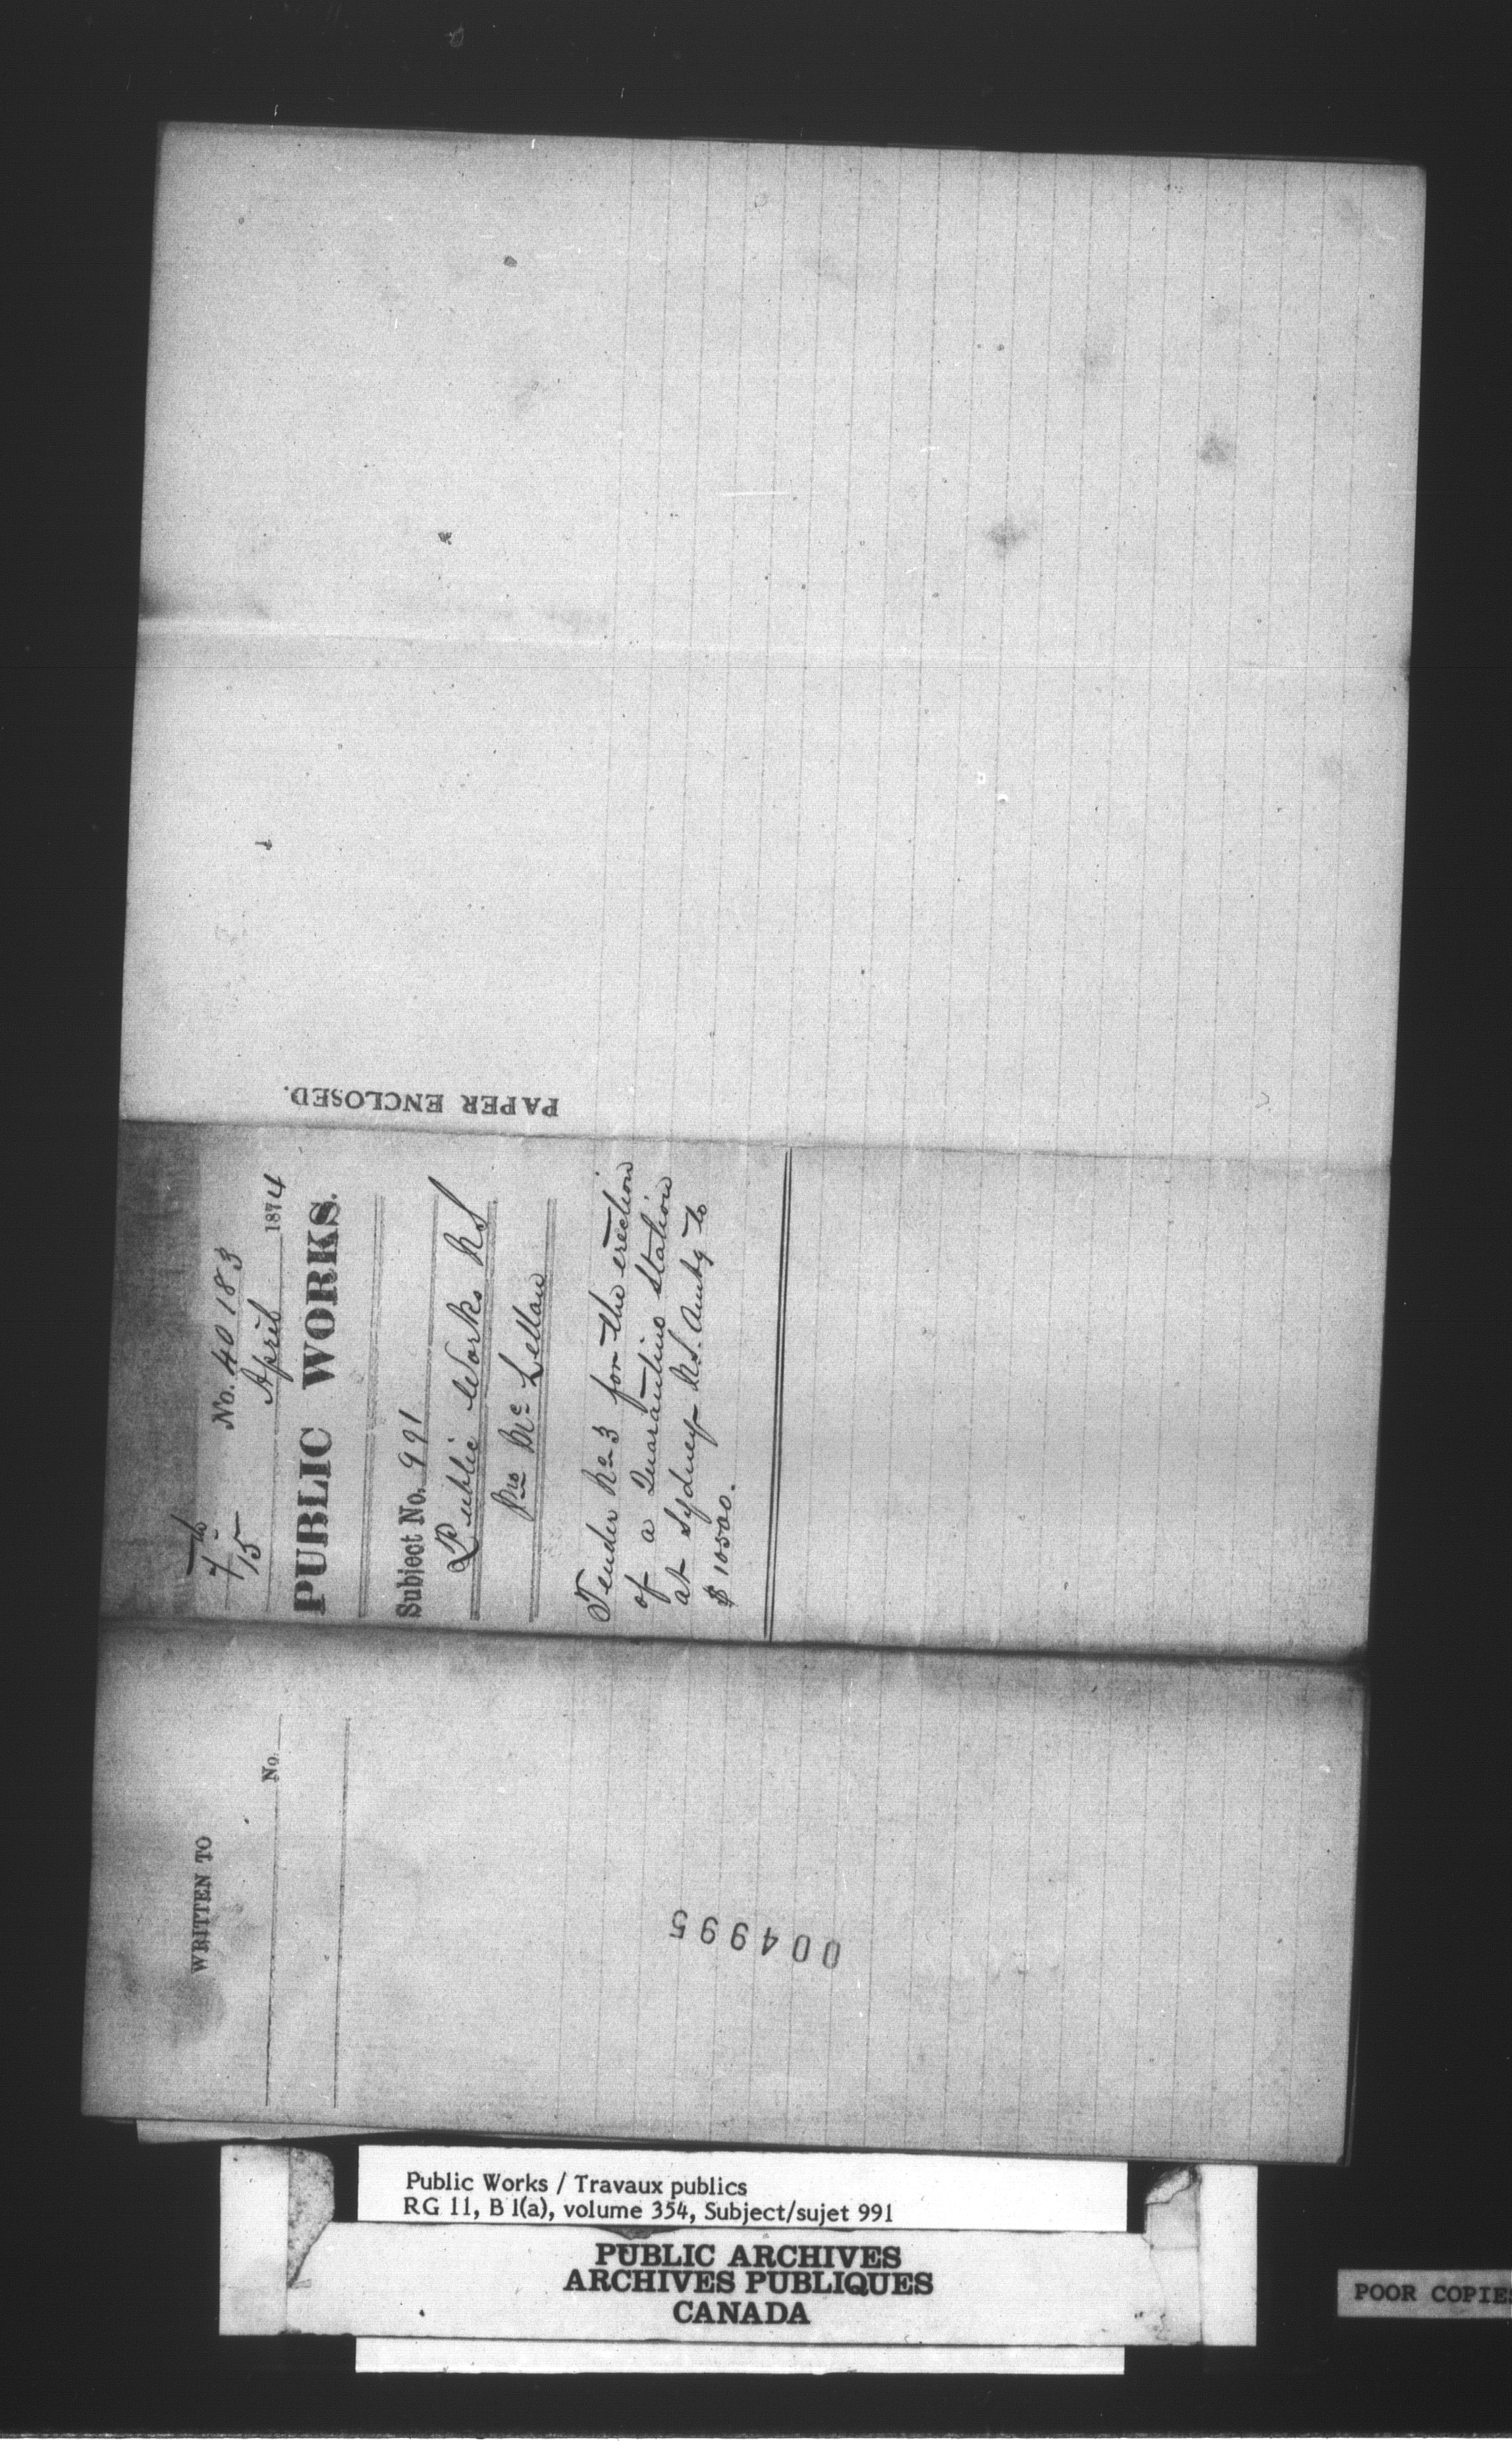 PAPER ENCLOSED.
7th
15
No. 40183
April 1874
PUBLIC WORKS.
Subject No. 991
Public Works NS
Mc Lellan
Tender No 3 for the erection
of a Quarantine Station
at Sydney N.S. Amtg to
$10500.
WRITTEN TO
No.
004995
Public Works / Travaux publics
RG 11, B 1(a), volume 354, Subject/sujet 991
PUBLIC ARCHIVES
ARCHIVES PUBLIQUES
CANADA
POOR COPIES